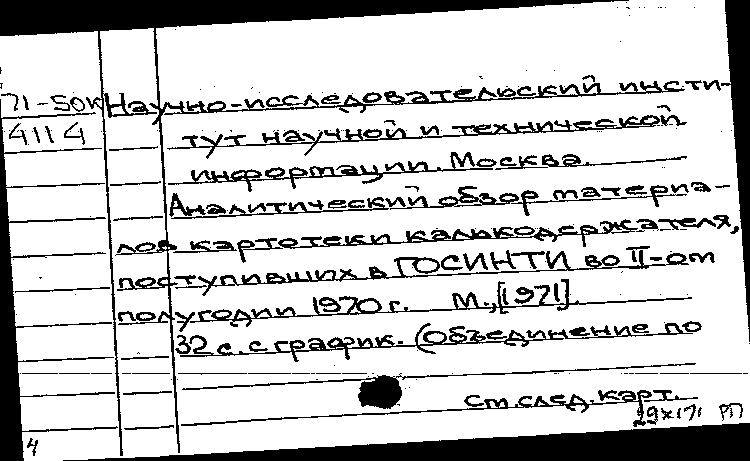 71-50к Научно-исследовательский инсти-
4114 тут научной и технической
информации. Москва.
Аналитический обзор материа-
лов картотеки калькодержателя,
поступивших в ГОСИНТИ во II-ом
полугодии 1970 г. М.,[1971].
32 с. с график. (Объединение по
См. след. карт.
29 X 71 РП
4